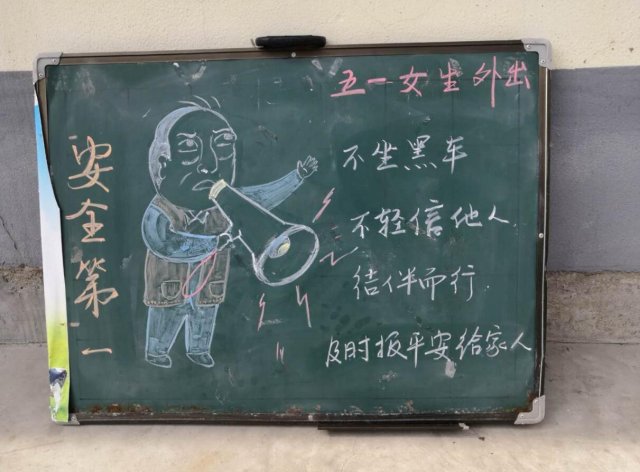 安全第一
五一女生外出
不坐黑车
不轻信他人.
结伴而行.
及时报平安给家人